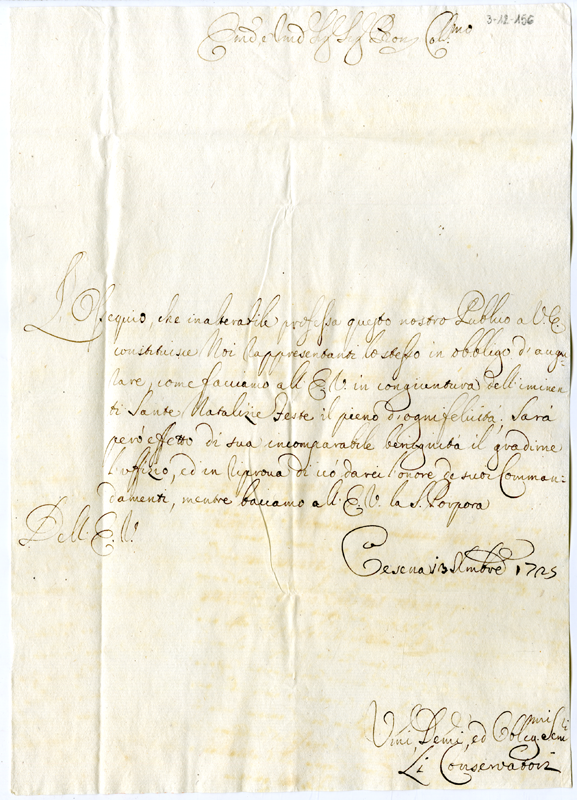 3-12-156
Em.º e Rmd Sig.r Sig.r Pron Col.mo
L'Ossequio, che inalterabile professa questo nostro Publico a V. E.
constituisce Noi rappresentanti lo stesso in obbligo di augu-
rare, come facciamo all'E. V. in congiuntura dell'iminen-
ti Sante Natalizie Feste il pieno d'ogni felicità; Sarà
però effetto di sua incomparabile benignità il gradirne
l'uffizio, ed in riprova di ciò darci l'onore de suoi Comman-
damenti, mentre bacciamo all'E. V. la S. Porpora
Dell'E. V.
Cesena 13 Xmbre 1725
Umi, Devmi, ed Obligmi Servi
Li Conservatori